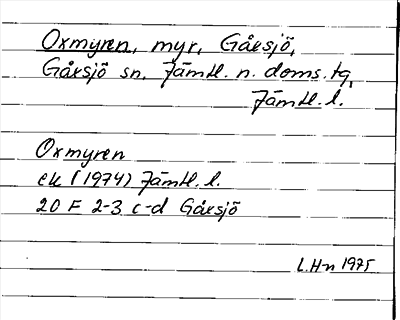 Oxmyren, myr, Gåxsjö,
Gåxsjö sn, Jämtl. n. doms. tg,
Jämtl. l.
Oxmyren
ek (1974) Jämtl. l.
20 F 2-3 c-d Gåxsjö
L.H-n 1975